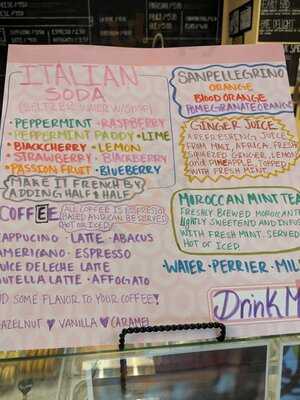 ITALIAN
SODA
(SELTZER WATER W/SYRUP)
• PEPPERMINT • RASPBERRY
• PEPPERMINT PADDY • LIME
• BLACKCHERRY • LEMON
• STRAWBERRY • BLACKBERRY
• PASSION FRUIT • BLUEBERRY
MAKE IT FRENCH BY
ADDING HALF & HALF
COFFEE
ALL COFFEE IS ESPRESSO
BASED AND CAN BE SERVED
HOT OR ICED!
CAPPUCINO • LATTE • ABACUS
AMERICANO • ESPRESSO
DULCE DE LECHE LATTE
NUTELLA LATTE • AFFOGATO
ADD SOME FLAVOR TO YOUR COFFEE!
HAZELNUT ♥ VANILLA ♥ CARAMEL
SANPELLEGRINO
ORANGE
BLOOD ORANGE
POMEGRANATE ORANGE
GINGER JUICE
A REFRESHING JUICE
FROM MALI, AFRICA. FRESH
SQUEEZED GINGER, LEMON
and PINEAPPLE. TOPPED
WITH FRESH MINT.
MOROCCAN MINT TEA
FRESHLY BREWED MOROCCAN TEA
LIGHTLY SWEETEND AND INFUSED
WITH FRESH MINT. SERVED
HOT OR ICED
• WATER • PERRIER • MILK
Drink M